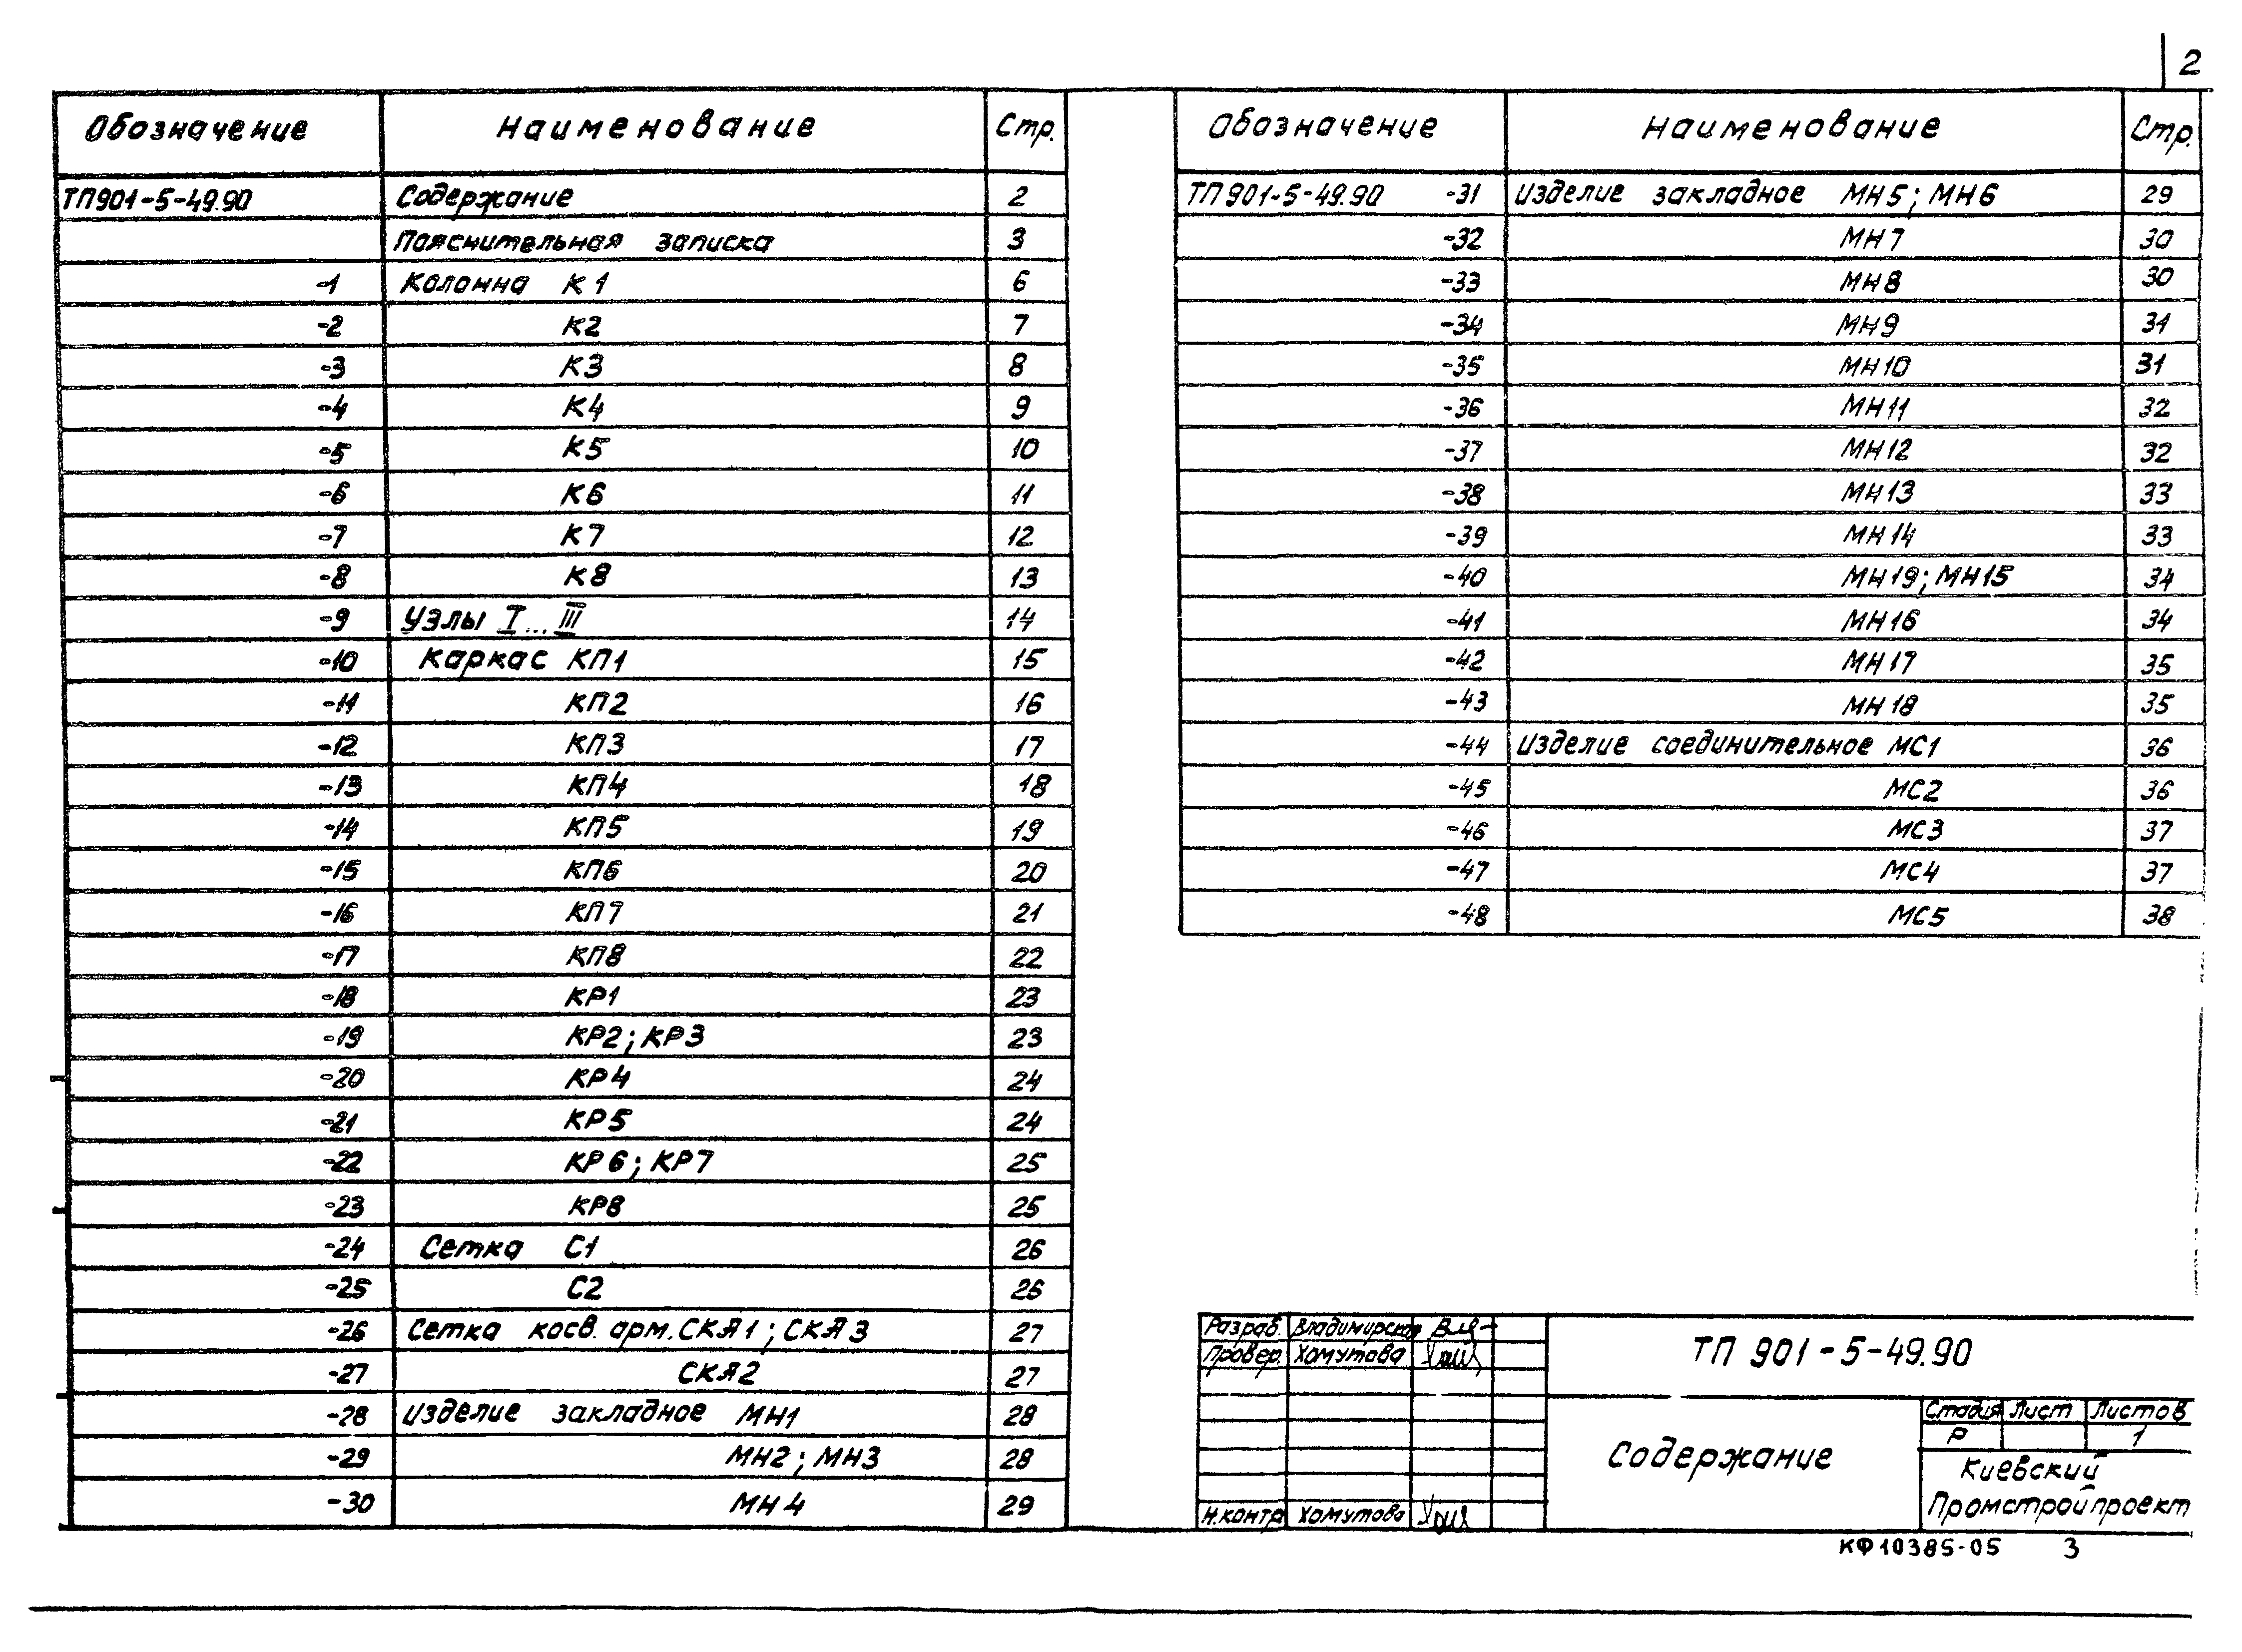 2
Обозначение Наименование Стр.
ТП901-5-49.90 Содержание 2
Пояснительная записка 3
-1 Колонна К1 6
-2 К2 7
-3 К3 8
-4 К4 9
-5 К5 10
-6 К6 11
-7 К7 12
-8 К8 13
-9 Узлы I...III 14
-10 Каркас КП1 15
-11 КП2 16
-12 КП3 17
-13 КП4 18
-14 КП5 19
-15 КП6 20
-16 КП7 21
-17 КП8 22
-18 КР1 23
-19 КР2; КР3 23
-20 КР4 24
-21 КР5 24
-22 КР6; КР7 25
-23 КР8 25
-24 Сетка С1 26
-25 С2 26
-26 Сетка косв. арм. СКА1; СКА3 27
-27 СКА2 27
-28 Изделие закладное МН1 28
-29 МН2; МН3 28
-30 МН4 29
Обозначение Наименование Стр.
ТП901-5-49.90 -31 Изделие закладное МН5; МН6 29
-32 МН7 30
-33 МН8 30
-34 МН9 31
-35 МН10 31
-36 МН11 32
-37 МН12 32
-38 МН13 33
-39 МН14 33
-40 МН19; МН15 34
-41 МН16 34
-42 МН17 35
-43 МН18 35
-44 Изделие соединительное МС1 36
-45 МС2 36
-46 МС3 37
-47 МС4 37
-48 МС5 38
Разраб. Владимирская
Провер. Хомутова
Н.контр Хомутова
ТП 901-5-49.90
Содержание
Стадия Лист Листов
Р 1
Киевский
Промстройпроект
КФ10385-05 3